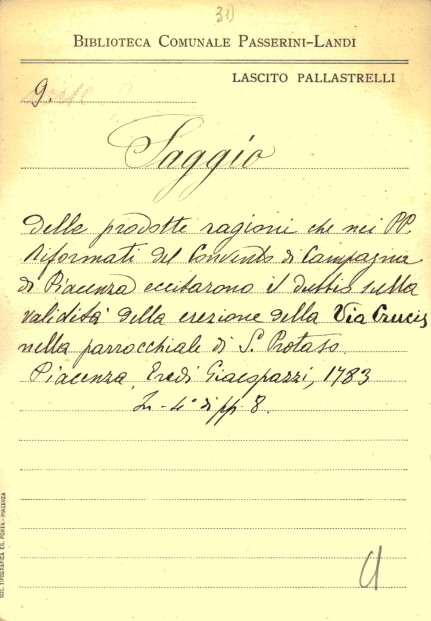 31)
BIBLIOTECA COMUNALE PASSERINI-LANDI
LASCITO PALLASTRELLI
9.
Saggio
delle prodotte ragioni che nei PP.
Riformati del Convento di Campagna
di Piacenza eccitarono il dubbio sulla
validità della erezione della Via Crucis
nella parrocchiale di S. Protaso.
Piacenza, Eredi Giacopazzi, 1783
In-4° di pp. 8.
SOC. TIPOGRAFICA ED. PORTA - PIACENZA